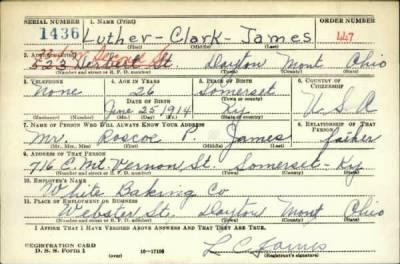 SERIAL NUMBER 1. NAME (Print) ORDER NUMBER
1436 Luther - Clark - James 447
(First) (Middle) (Last)
2. ADDRESS (Print)
523 St. Dayton Mont Ohio
(Number and street or R. F. D. number) (Town) (County) (State)
3. TELEPHONE 4. AGE IN YEARS 5. PLACE OF BIRTH 6. COUNTRY OF CITIZENSHIP
None 26 Somerset
DATE OF BIRTH (Town or county)
June 25 1914 Ky U. S. A
(Exchange) (Number) (Mo.) (Day) (Yr.) (State or country)
7. NAME OF PERSON WHO WILL ALWAYS KNOW YOUR ADDRESS 8. RELATIONSHIP OF THAT PERSON
Mr. Roscoe P. James father
(Mr., Mrs., Miss) (First) (Middle) (Last)
9. ADDRESS OF THAT PERSON
716 E Mt. Vernon St. Somerset - Ky
(Number and street or R. F. D. number) (Town) (County) (State)
10. EMPLOYER'S NAME
White Baking Co
11. PLACE OF EMPLOYMENT OR BUSINESS
Webster St. Dayton Mont Ohio
(Number and street or R. F. D. number) (Town) (County) (State)
I AFFIRM THAT I HAVE VERIFIED ABOVE ANSWERS AND THAT THEY ARE TRUE.
REGISTRATION CARD
D. S. S. Form 1 16—17105 L C James
(over) (Registrant's signature)